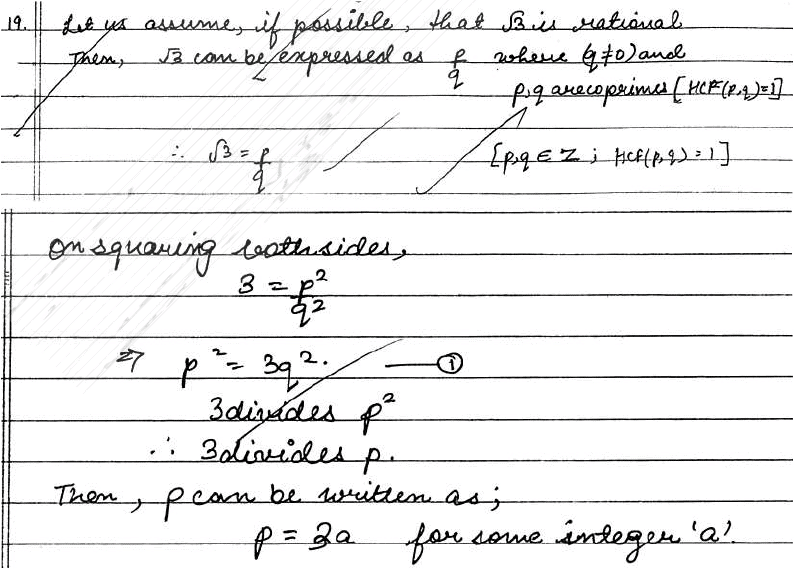 19. Let us assume, if possible, that √3 is rational
Then, √3 can be expressed as p/q where (q≠0) and
p,q are coprimes [HCF(p,q)=1]
∴ √3 = p/q [p,q ∈ Z ; HCF(p,q) = 1]
On squaring both sides,
3 = p²/q²
⇒ p² = 3q². —— ①
3 divides p²
∴ 3 divides p.
Then, p can be written as;
p = 3a for some integer 'a'.